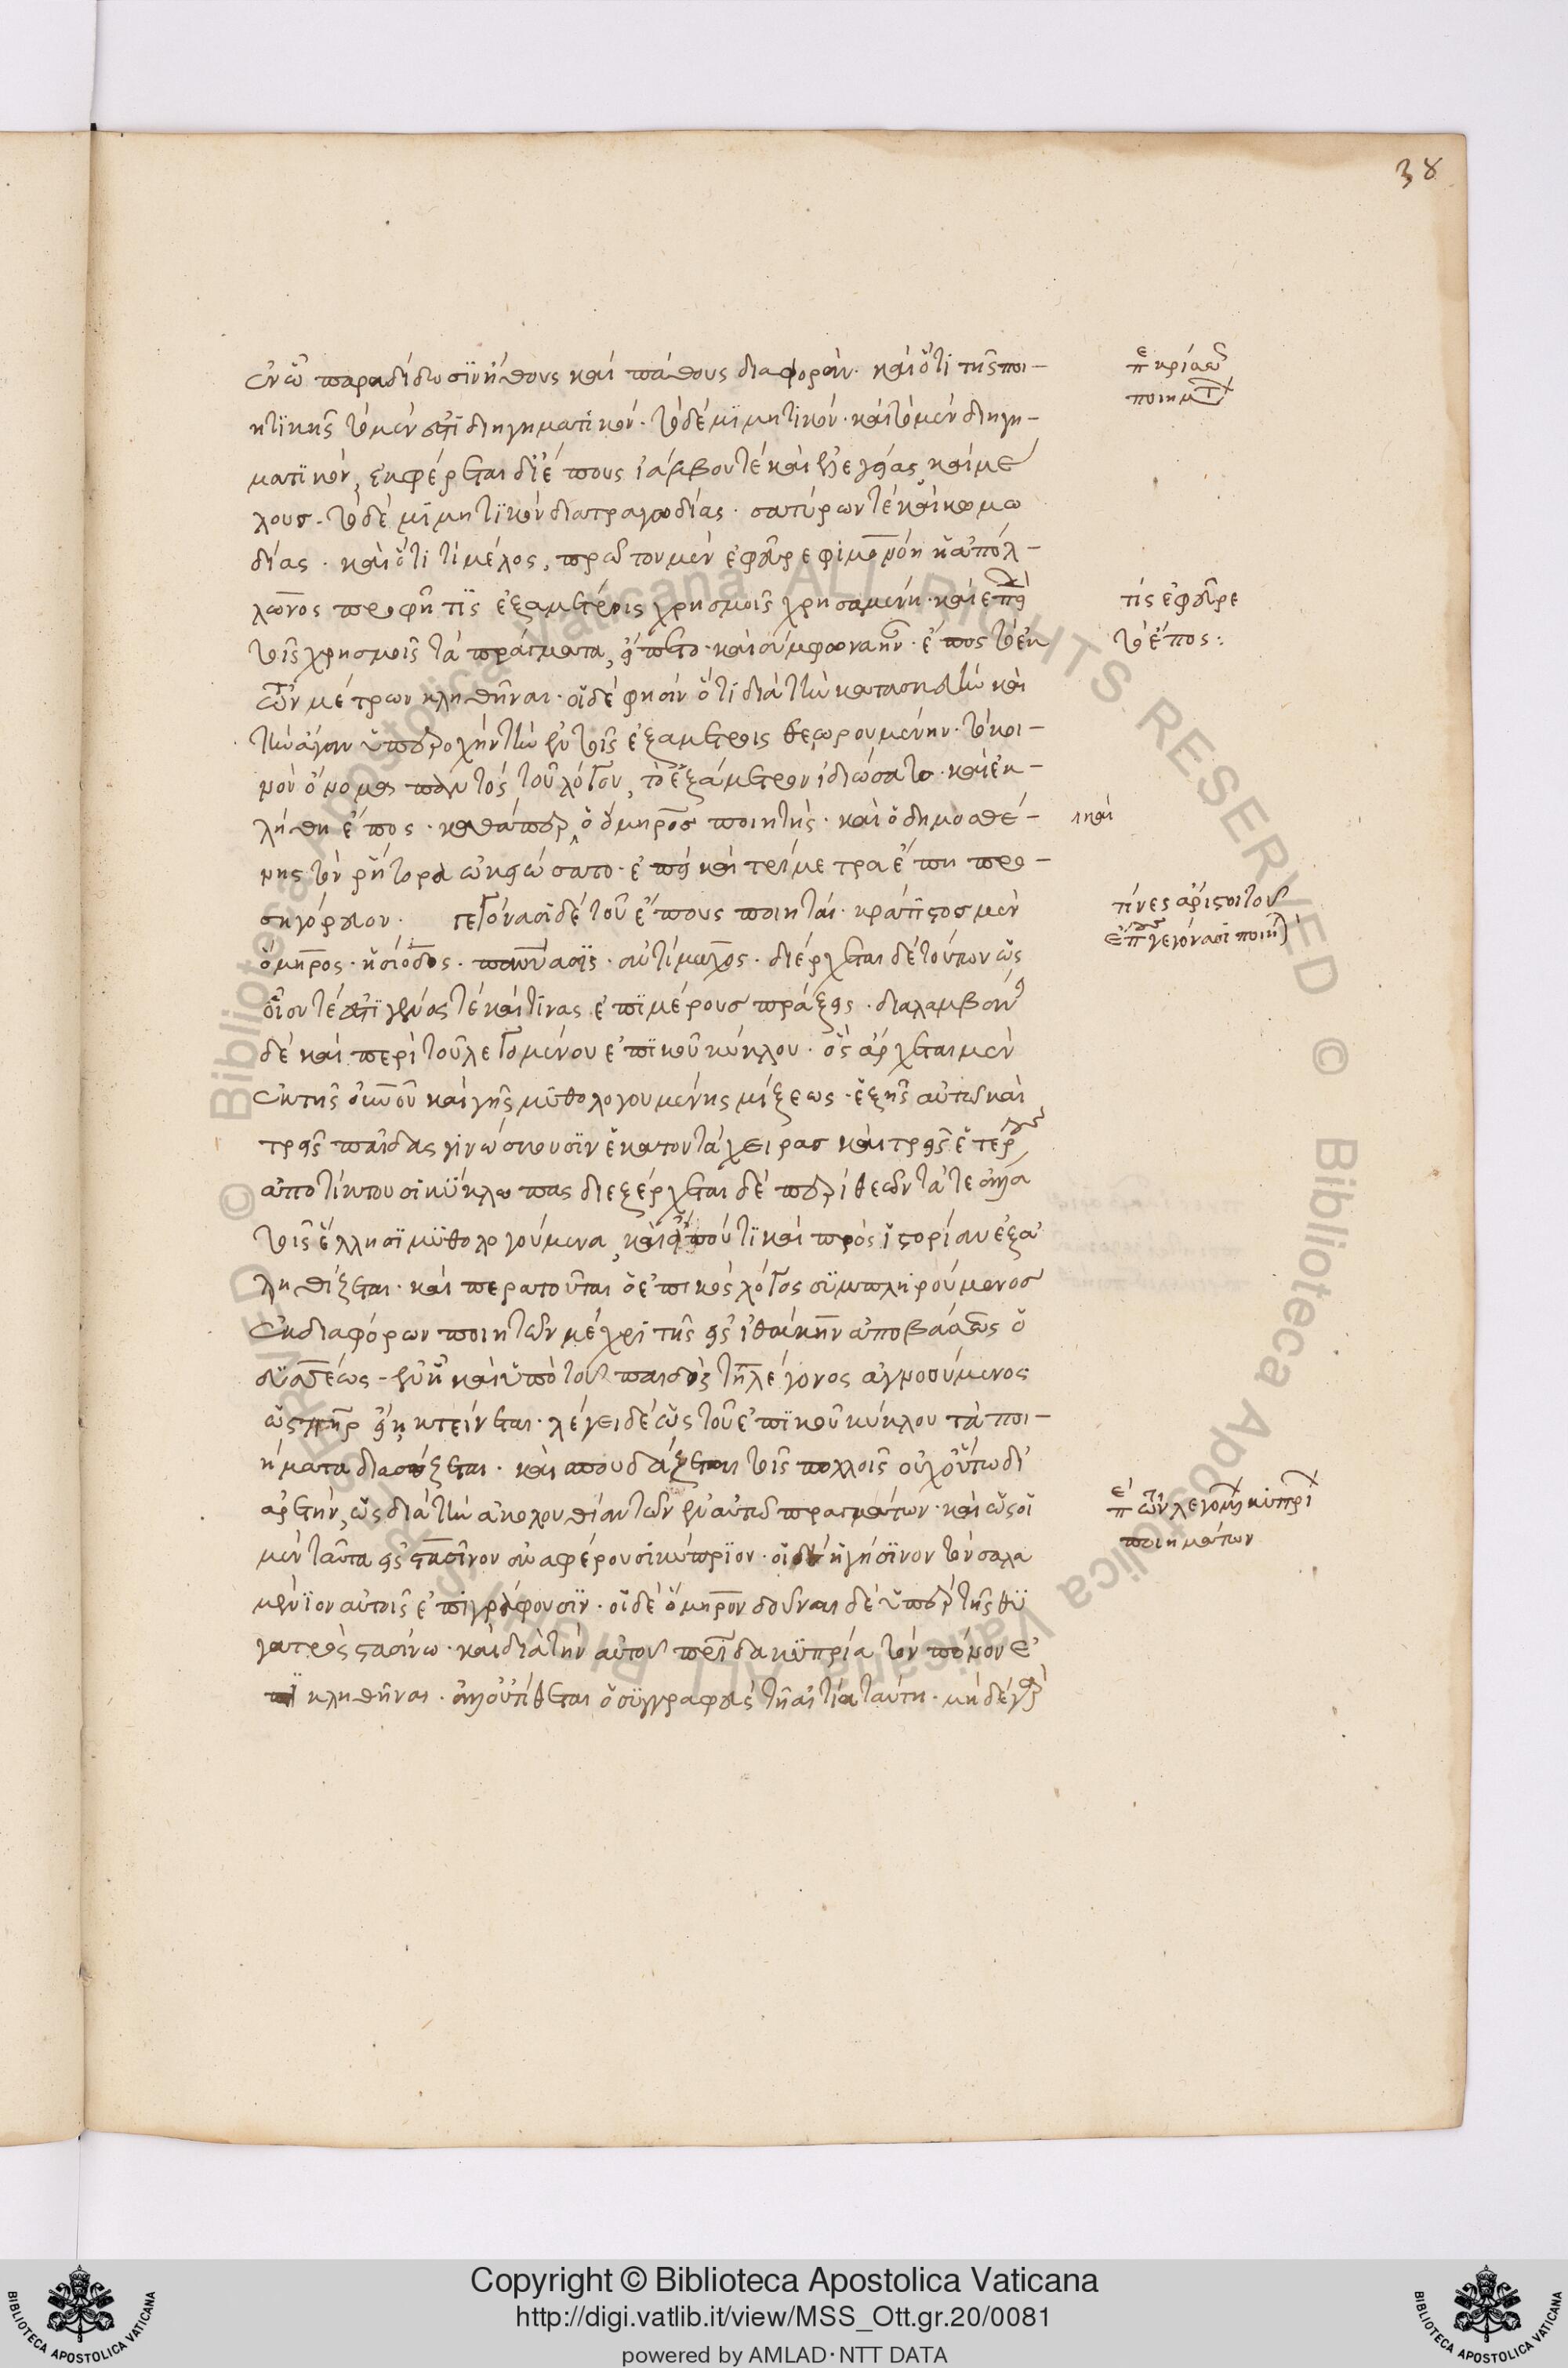 ἐν ᾧ παραδίδωσιν ἤθους καὶ πάθους διαφοράν. καὶ ὅτι τῆς ποι-
ητικῆς τὸ μέν ἐστι διηγηματικόν. τὸ δὲ μιμητικόν. καὶ τὸ μὲν διηγη-
ματικόν, ἐκφέρεται δι' ἔπους ἰάμβου τὲ καὶ ἐλεγείας, καὶ μέ
λους. τὸ δὲ μιμητικὸν διὰ τραγωδίας. σατύρων τὲ καὶ κωμω
δίας. καὶ ὅτι τὶ μέλος, πρῶτον μὲν ἐφεῦρε φιμονόη ἡ ἀπόλ-
λωνος προφῆτις ἑξαμέτροις χρησμοῖς χρησαμένη. καὶ ἐπεὶ
τοῖς χρησμοῖς τὰ πράγματα, εἵπετο. καὶ σύμφωνα ἦν. ἔπος τὸ ἐκ
τῶν μέτρων κληθῆναι. οἱ δέ φησιν ὅτι διὰ τὴν κατασκευὴν καὶ
τὴν ἄγαν ὑπεροχὴν τὴν ἐν τοῖς ἑξαμέτροις θεωρουμένην. τὸ κοι-
νὸν ὄνομα παντὸς τοῦ λόγου, τὸ ἑξάμετρον ἰδιώσατο. καὶ ἐκ-
λήθη ἔπος. καθάπερ ὁ ὅμηρος ποιητής. καὶ ὁ δημοσθέ-
νης τὸν ῥήτορα ᾠκειώσατο. ἐπεὶ καὶ τρίμετρα ἔπη προ-
σηγόρευον. γεγόνασι δὲ τοῦ ἔπους ποιηταί. κράτιστος μὲν
ὅμηρος. ἡσίοδος. πανύασις. ἀντίμαχος. διέρχεται δὲ τούτων ὡς
οἷόν τέ ἐστι γένος τὲ καὶ τίνας ἐπὶ μέρους πράξεις. διαλαμβάνει
δὲ καὶ περὶ τοῦ λεγομένου ἐπικοῦ κύκλου. ὃς ἄρχεται μὲν
ἐκ τῆς οὐρανοῦ καὶ γῆς μυθολογουμένης μίξεως. ἐξ ἧς αὐτῶ καὶ
τρεῖς παῖδας γινώσκουσιν ἑκατοντάχειρας καὶ τρεῖς ἑτέρους
ἀποτίκτουσι κύκλωπας διεξέρχεται δὲ περὶ θεῶν τά τε ἄλλα
τοῖς ἕλλησι μυθολογούμενα, καὶ εἴ πού τι καὶ πρὸς ἱστορίαν ἐξα
ληθίζεται. καὶ περατοῦται ὁ ἐπικὸς λόγος συμπληρούμενος
ἐκ διαφόρων ποιητῶν μέχρι τῆς εἰς ἰθάκην ἀποβάσεως ὀ
δυσσέως. ἐν ᾗ καὶ ὑπὸ τοῦ παιδὸς τηλέγονος ἀγνοούμενος
ὡς πατὴρ εἴη κτείνεται. λέγει δὲ ὡς τοῦ ἐπικοῦ κύκλου τὰ ποι-
ήματα διασώζεται. καὶ σπουδάζεται τοῖς πολλοῖς οὐχ οὕτω δι'
ἀρετήν, ὡς διὰ τὴν ἀκολουθίαν τῶν ἐν αὐτῶ πραγμάτων. καὶ ὡς οἱ
μὲν ταῦτα εἰς στασῖνον ἀναφέρουσι κύπριον. οἱ δὲ ἡγησῖνον τὸν σαλα
μίνιον αὐτοῖς ἐπιγράφουσιν. οἱ δὲ ὅμηρον δοῦναι δὲ ὑπὲρ τῆς θυ
γατρὸς στασίνω. καὶ διὰ τὴν αὐτοῦ πατρίδα κύπρια τὸν πόνον ἐ
πικληθῆναι. ἀλλ' οὐ τίθεται ὁ συγγραφεὺς τῇ αἰτία ταύτη. μηδὲ γὰρ
τίς ἐφεῦρε
τὸ ἔπος:
καὶ
τίνες ἄριστοι τοῦ
ἔπους γεγόνασι ποιηταί
λεγομένων κυπρί
ποιημάτων
38
© Biblioteca Apostolica Vaticana ALL RIGHTS RESERVED
Copyright © Biblioteca Apostolica Vaticana
http://digi.vatlib.it/view/MSS_Ott.gr.20/0081
powered by AMLAD·NTT DATA
BIBLIOTECA APOSTOLICA VATICANA
BIBLIOTECA APOSTOLICA VATICANA